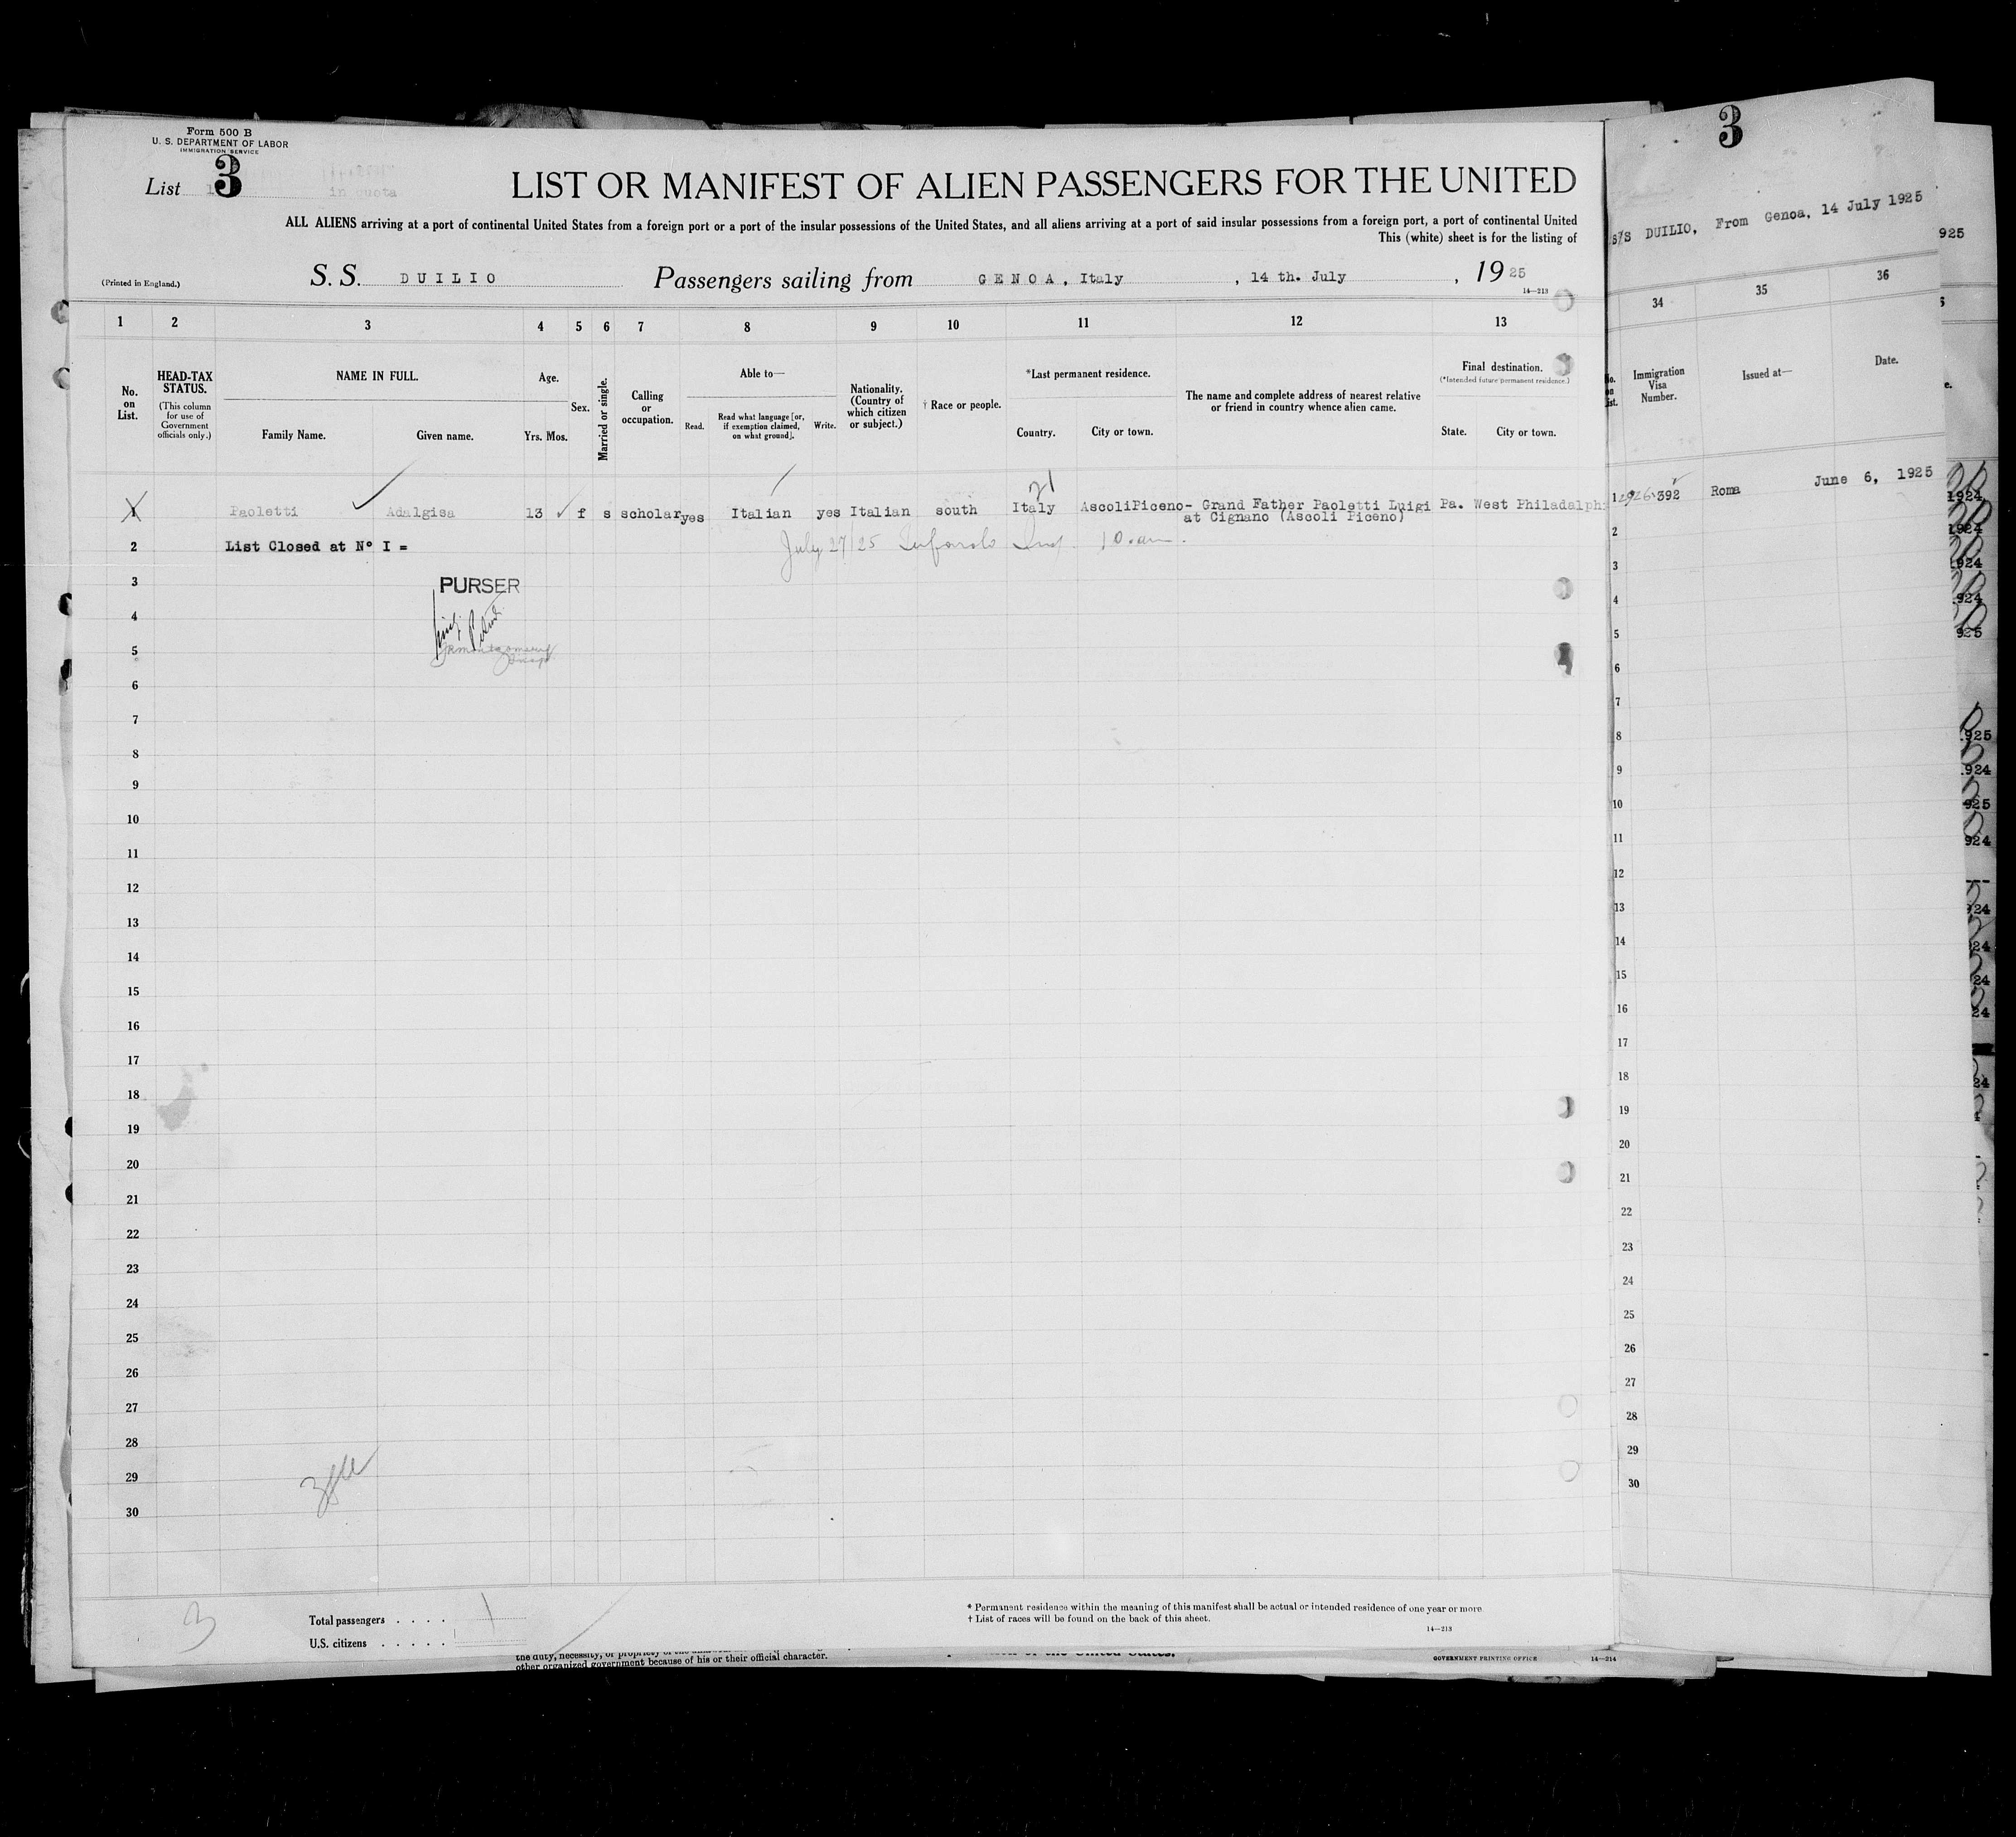 Form 500 B
U. S. DEPARTMENT OF LABOR
IMMIGRATION SERVICE
List 3
in quota
LIST OR MANIFEST OF ALIEN PASSENGERS FOR THE UNITED
ALL ALIENS arriving at a port of continental United States from a foreign port or a port of the insular possessions of the United States, and all aliens arriving at a port of said insular possessions from a foreign port, a port of continental United
This (white) sheet is for the listing of
(Printed in England.)
S. S. DUILIO Passengers sailing from GENOA, Italy, 14 th. July, 1925
14—213
1 2 3 4 5 6 7 8 9 10 11 12 13
No. on List.
HEAD-TAX STATUS.
(This column for use of Government officials only.)
NAME IN FULL.
Family Name. Given name.
Age.
Yrs. Mos.
Sex.
Married or single.
Calling or occupation.
Able to—
Read. Read what language [or, if exemption claimed, on what ground]. Write.
Nationality. (Country of which citizen or subject.)
† Race or people.
*Last permanent residence.
Country. City or town.
The name and complete address of nearest relative or friend in country whence alien came.
Final destination.
(*Intended future permanent residence.)
State. City or town.
1 Paoletti Adalgisa 13 f s scholar yes Italian yes Italian south Italy AscoliPiceno- Grand Father Paoletti Luigi Pa. West Philadalph
at Cignano (Ascoli Piceno)
2 List Closed at N° I =
July 27/25 10. am.
3
PURSER
4
5
6
7
8
9
10
11
12
13
14
15
16
17
18
19
20
21
22
23
24
25
26
27
28
29
30
3
Total passengers . . . . 1
U.S. citizens . . . . .
* Permanent residence within the meaning of this manifest shall be actual or intended residence of one year or more.
† List of races will be found on the back of this sheet.
14—213
other organized government because of his or their official character.
GOVERNMENT PRINTING OFFICE 14—214
3
S/S DUILIO, From Genoa, 14 July 1925
34 35 36
Immigration Visa Number.
Issued at—
Date.
1 392 Roma June 6, 1925
2
3
4
5
6
7
8
9
10
11
12
13
14
15
16
17
18
19
20
21
22
23
24
25
26
27
28
29
30
925
1924
1924
1924
924
925
925
924
925
924
24
24
24
24
24